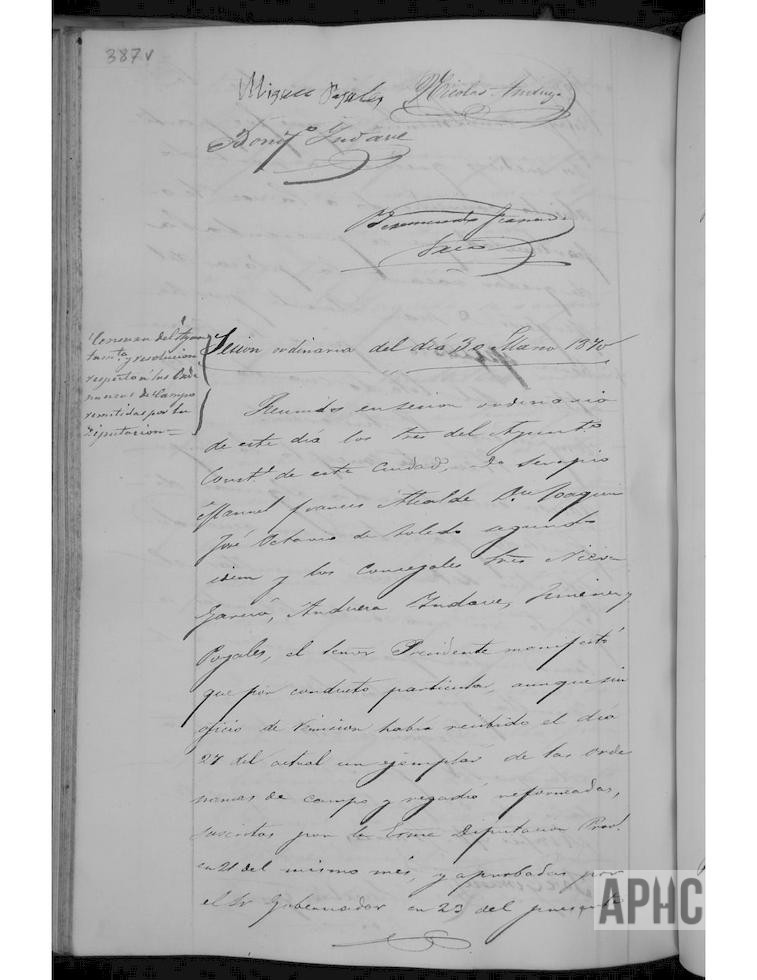 387v
Miguel Pozales Nicolas Andueza
Bonif.º Indave
Secr.º
Censura del Ayun
tam.to y resolucion
respecto á las Orde
nanzas de Campo
remitidas por la
Diputacion =
Sesion ordinaria del dia 30 Marzo 1870
Reunidos en sesion ordinaria
de este dia los Sres del Ayunt.º
Const.l de esta Ciudad, Dn Serapio
Manuel Frances Alcalde Dn Joaquin
José Octavio de Toledo segundo
idem y los Concejales Sres
Garcia, Andueza Indave, Jimenez y
Pozales, el Señor Presidente manifestó
que por conducto particular, aunque sin
oficio de remision habia recibido el dia
27 del actual un ejemplar de las Orde
nanzas de campo y regadio reformadas,
suscritas por la Exma Diputacion Prov.l
en 21 del mismo mes, y aprobadas por
el Sr Gobernador en 23 del presente
APHC